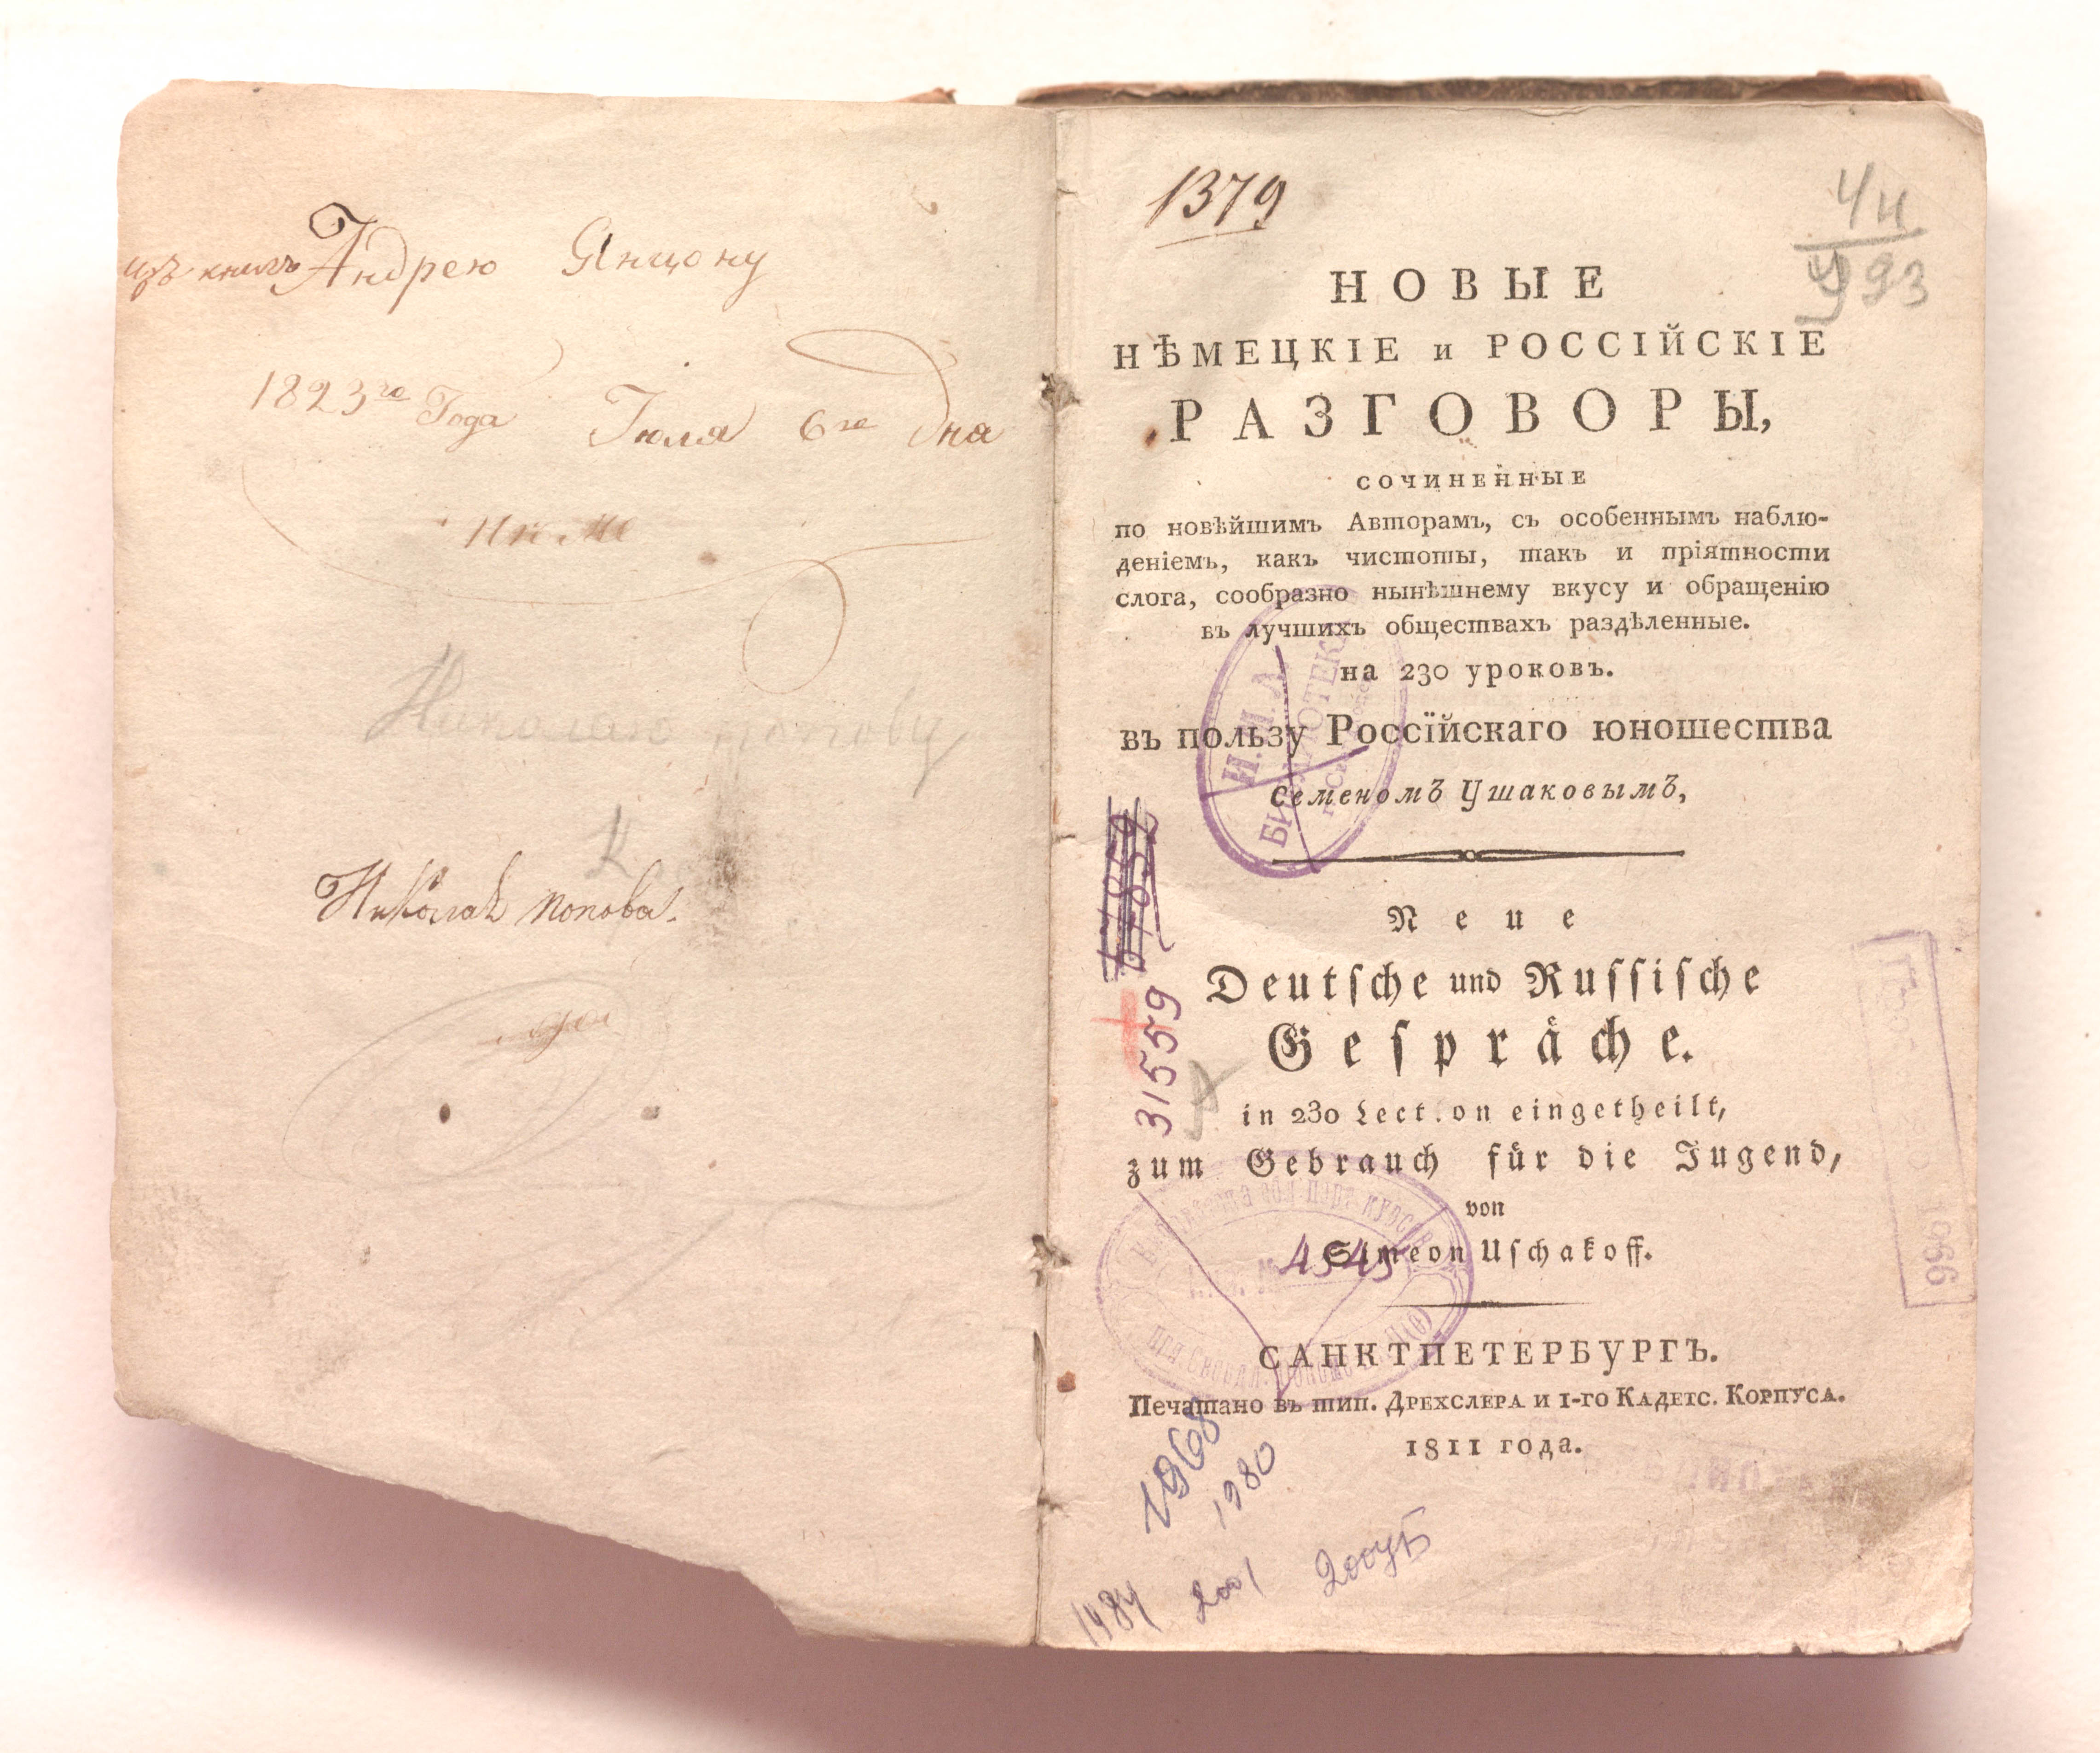 изъ книгъ Андрею Янцону
1823го Года Июля 6го дна
Николаю Попову
К
Николая Попова.
1379
НОВЫЕ
НѢМЕЦКІЕ и РОССІЙСКІЕ
РАЗГОВОРЫ,
СОЧИНЕННЫЕ
по новѣйшимъ Авторамъ, съ особеннымъ наблю-
деніемъ, какъ чистоты, такъ и пріятности
слога, сообразно нынѣшнему вкусу и обращенію
въ лучшихъ обществахъ раздѣленные.
на 230 уроковъ.
въ пользу Россїйскаго юношества
Семеномъ Ушаковымъ,
И.И.А.
БИБЛИОТЕКА
31559
Neue
Deutſche und Ruſſiſche
Geſpräche.
in 230 Lect.on eingetheilt,
zum Gebrauch für die Jugend,
von
Simeon Uſchakoff.
4545
САНКТПЕТЕРБУРГЪ.
Печатано въ тип. Дрехслера и 1-го Кадетс. Корпуса.
1811 года.
1966
1968
1980
1984
2001